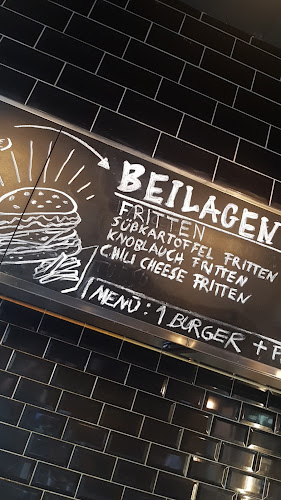 BEILAGEN
FRITTEN
SÜßKARTOFFEL FRITTEN
KNOBLAUCH FRITTEN
CHILI CHEESE FRITTEN
MENÜ: 1 BURGER +